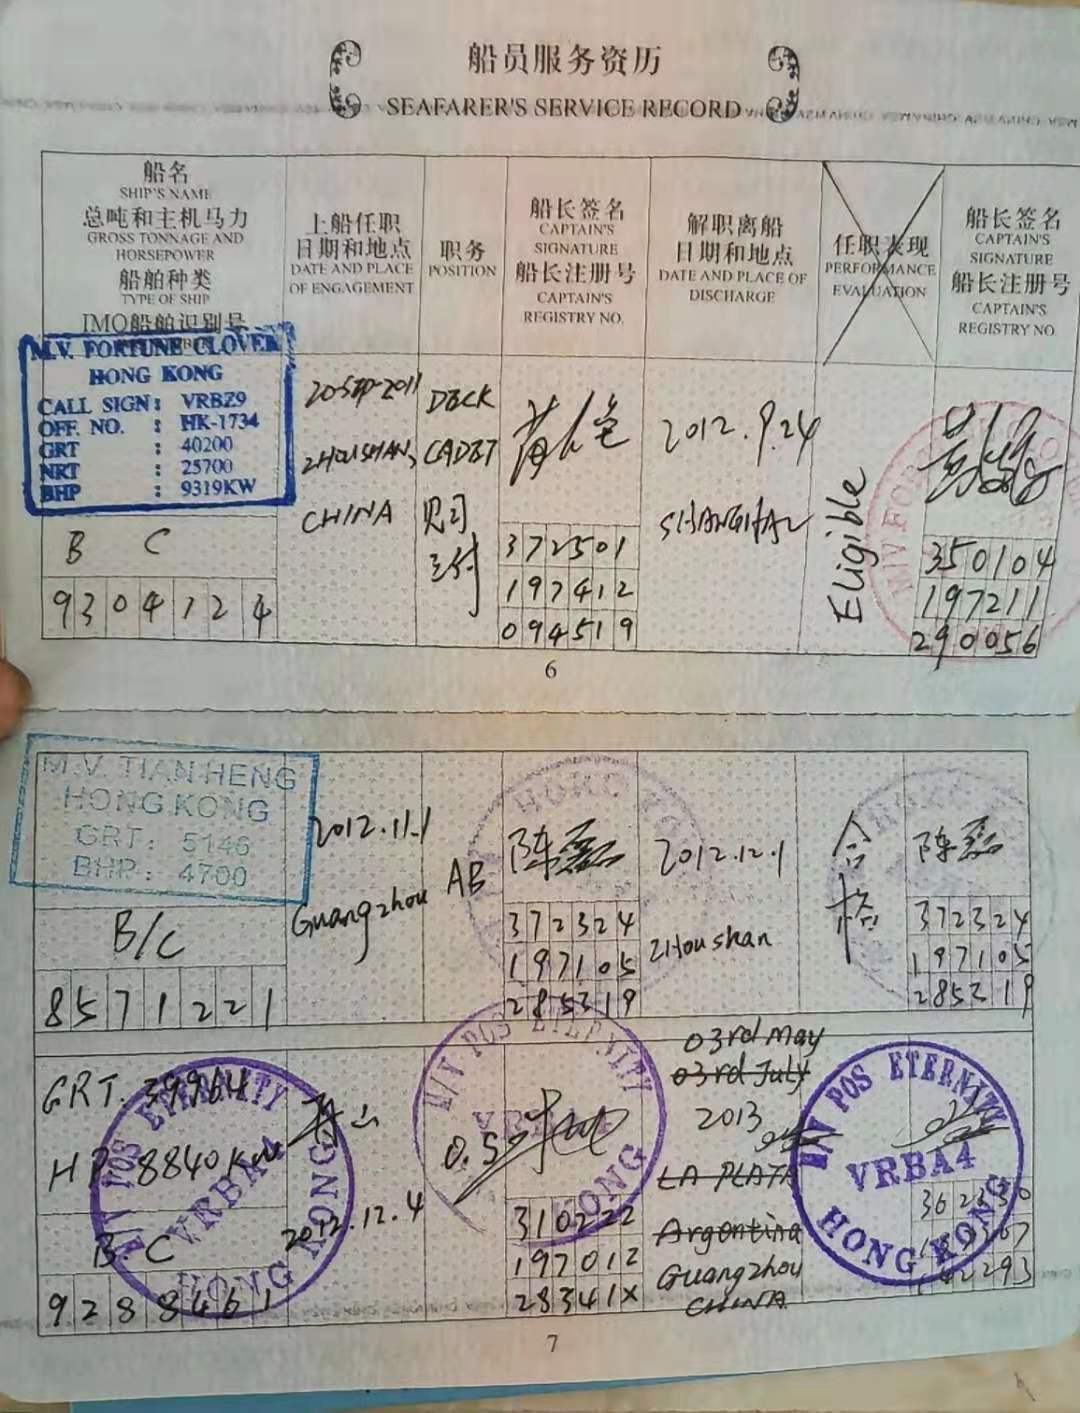 船员服务资历
SEAFARER'S SERVICE RECORD
船名
SHIP'S NAME
总吨和主机马力
GROSS TONNAGE AND
HORSEPOWER
船舶种类
TYPE OF SHIP
IMO船舶识别号
上船任职
日期和地点
DATE AND PLACE
OF ENGAGEMENT
职务
POSITION
船长签名
CAPTAIN'S
SIGNATURE
船长注册号
CAPTAIN'S
REGISTRY NO.
解职离船
日期和地点
DATE AND PLACE OF
DISCHARGE
任职表现
PERFORMANCE
EVALUATION
船长签名
CAPTAIN'S
SIGNATURE
船长注册号
CAPTAIN'S
REGISTRY NO.
M.V. FORTUNE CLOVER
HONG KONG
CALL SIGN: VRBZ9
OFF. NO. : HK-1734
GRT : 40200
NRT : 25700
BHP : 9319KW
B C
9304124
20-SEP-2011
ZHOUSHAN,
CHINA
DECK
CADET
见习
三付
372501
197412
094519
2012.9.24
SHANGHAI
Eligible
350104
197211
290056
6
M.V. TIAN HENG
HONG KONG
GRT: 5146
BHP: 4700
B/C
8571221
2012.11.1
Guangzhou
AB
陈磊
372324
197105
285319
2012.12.1
ZHoushan
合格
陈磊
372324
197105
285319
GRT. 39964
HP 8840KW
B.C
9288461
M/V POS ETERNITY
VRBA4
HONG KONG
舟山
2012.12.4
O.S
M/V POS ETERNITY
HONG KONG
310222
197012
28341X
03rd May
03rd July
2013
LA PLATA
Argentina
Guangzhou
CHINA
M/V POS ETERNITY
VRBA4
HONG KONG
7